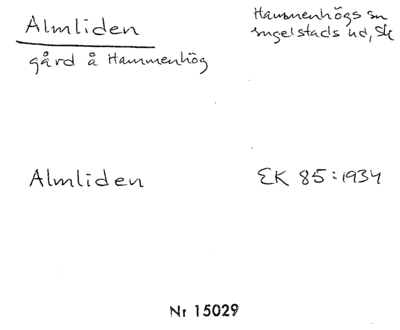 Almliden
Hammenhögs sn
Ingelstads hd, Sk
gård å Hammenhög
Almliden
EK 85:1934
Nr 15029